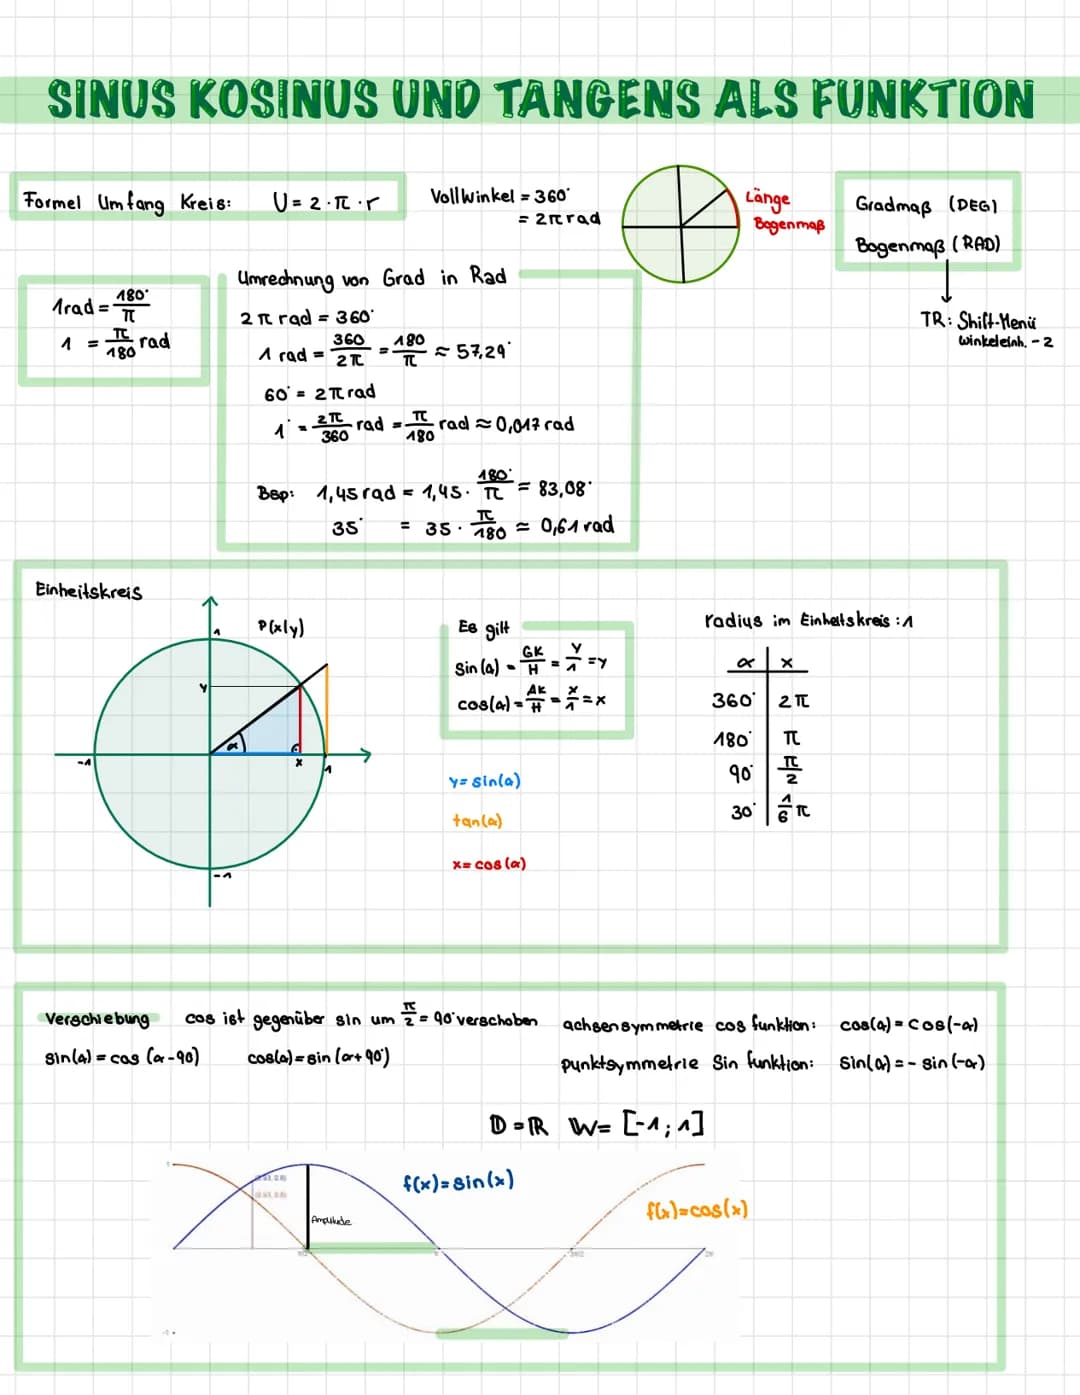 SINUS KOSINUS UND TANGENS ALS FUNKTION
Formel Umfang Kreis: U = 2 · π · r
Vollwinkel = 360°
= 2π rad
Länge
Bogenmaß
Gradmaß (DEG)
Bogenmaß (RAD)
TR: Shift-Menü
Winkeleinh. - 2
1rad = 180°/π
1 = π/180 rad
Umrechnung von Grad in Rad
2π rad = 360°
1 rad = 360/2π = 180/π ≈ 57,29°
60° = 2π rad
1° = 2π/360 rad = π/180 rad ≈ 0,017 rad
Bsp: 1,45 rad = 1,45 · 180°/π = 83,08°
35° = 35 · π/180 ≈ 0,61 rad
Einheitskreis
P(x|y)
1
y
α
-1
x
1
-1
Es gilt
sin(α) = GK/H = y/1 = y
cos(α) = AK/H = x/1 = x
y = sin(α)
tan(α)
x = cos(α)
radius im Einheitskreis: 1
α x
360° 2π
180° π
90° π/2
30° 1/6 π
Verschiebung cos ist gegenüber sin um π/2 = 90° verschoben
sin(α) = cos(α-90) cos(α) = sin(α+90°)
achsensymmetrie cos funktion: cos(α) = cos(-α)
punktsymmetrie Sin funktion: Sin(α) = - sin(-α)
D = R W = [-1; 1]
f(x) = sin(x)
f(x) = cos(x)
Amplitude
1
π/2
π
3π/2
2π
-1